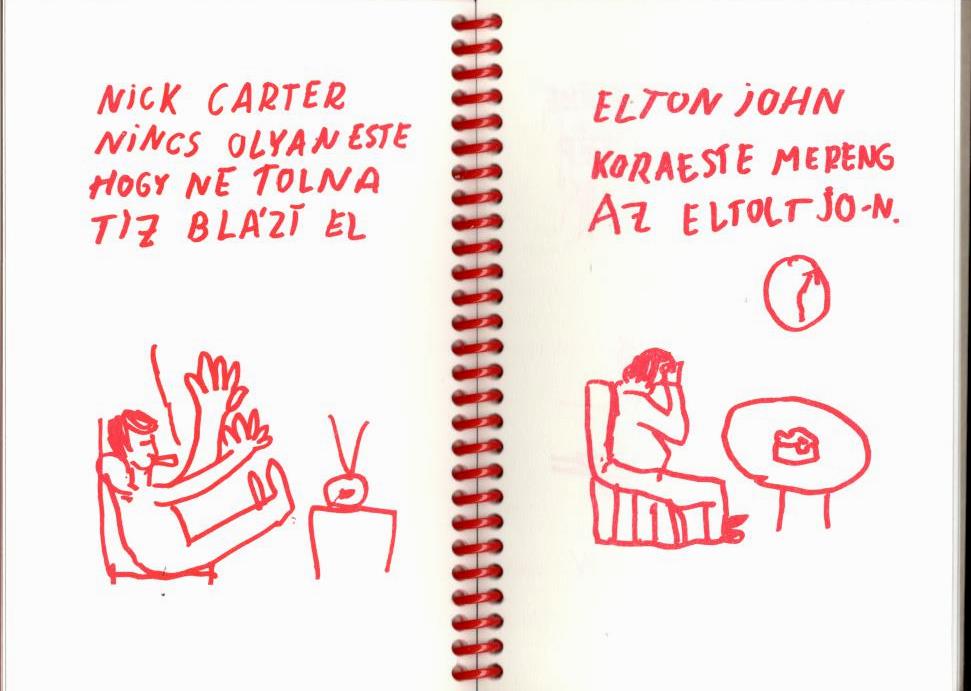 NICK CARTER
NINCS OLYAN ESTE
HOGY NE TOLNA
TIZ BLÁZT EL
ELTON JOHN
KORAESTE MERENG
AZ ELTOLT JO-N.